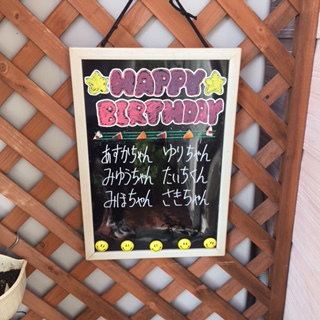 HAPPY
BIRTHDAY
あすかちゃん ゆりちゃん
みゆうちゃん たいちくん
みほちゃん さきちゃん